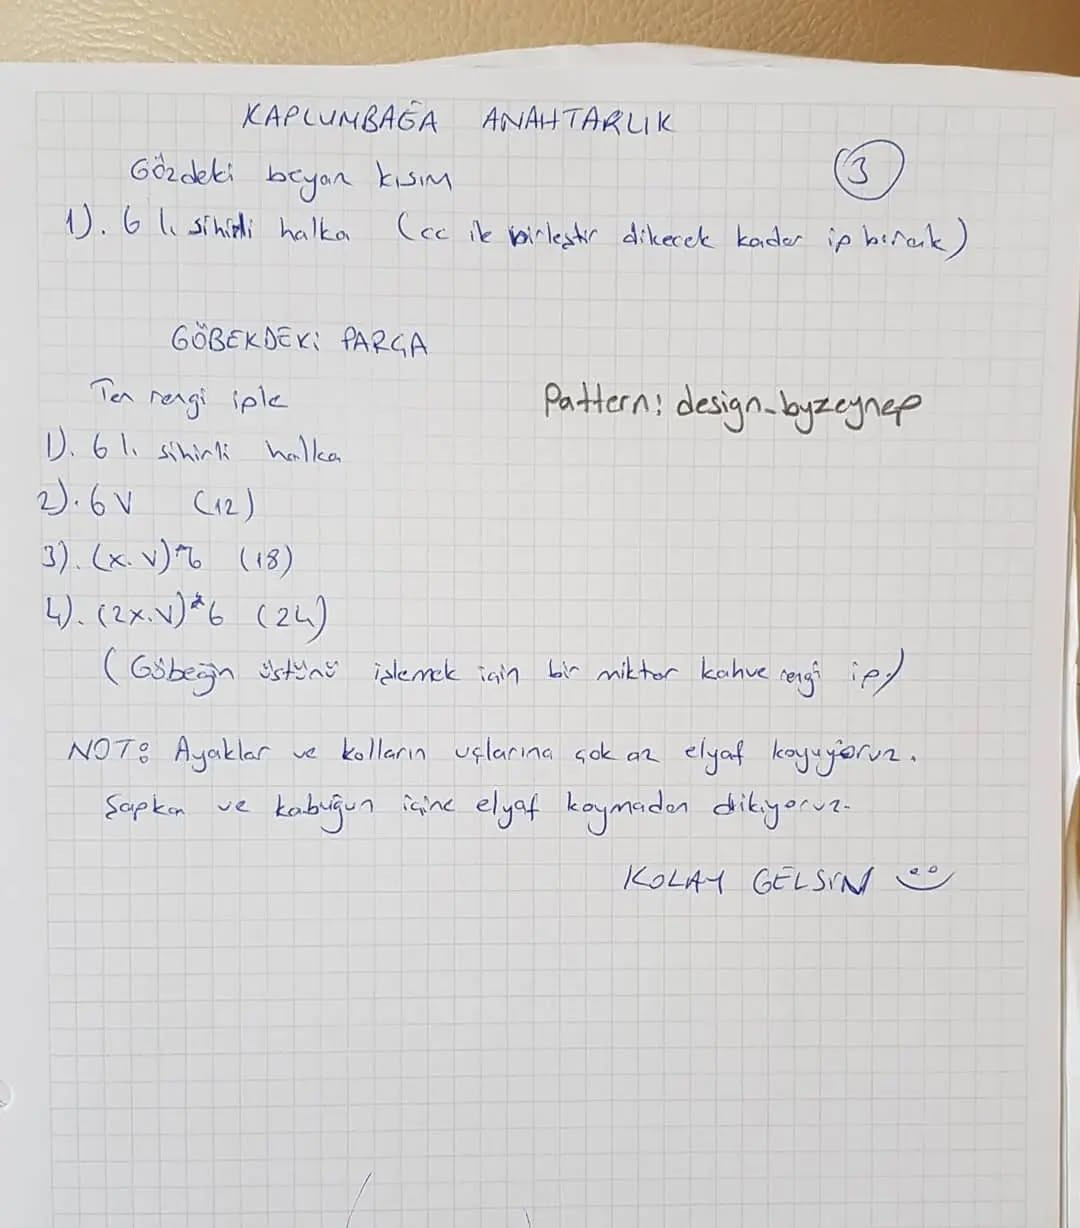 KAPLUMBAĞA ANAHTARLIK
3
Gözdeki beyaz kısım
1). 6 lı sihirli halka (cc ile birleştir dikecek kadar ip bırak)
GÖBEKDEKİ PARÇA
Ten rengi iple
Pattern: design_byzeynep
1). 6 lı sihirli halka
2). 6 V (12)
3). (x.v)*6 (18)
4). (2x.v)*6 (24)
(Göbeğin üstünü işlemek için bir miktar kahve rengi ip)
NOT: Ayaklar ve kolların uçlarına çok az elyaf koyuyoruz.
Şapkan ve kabuğun içine elyaf koymadan dikiyoruz.
KOLAY GELSİN